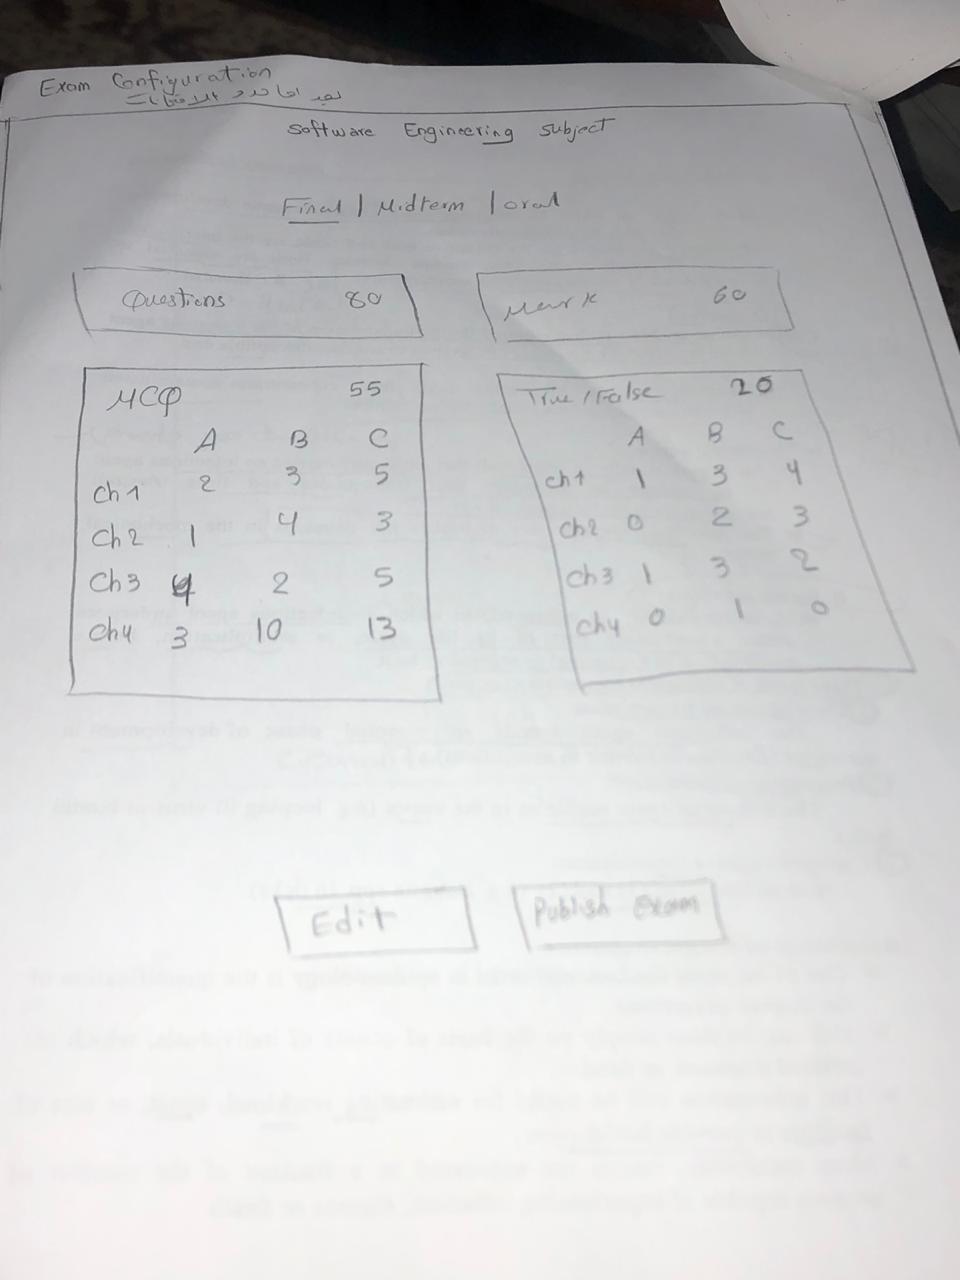 Exam Configuration
بعد اعادة الامتحانات
Software Engineering Subject
Final | Midterm | oral
Questions 80
Mark 60
MCQ 55
A B C
Ch1 2 3 5
Ch2 1 4 3
Ch3 4 2 5
Ch4 3 10 13
True/False 20
A B C
ch1 1 3 4
ch2 0 2 3
ch3 1 3 2
ch4 0 1 0
Edit
Publish Exam